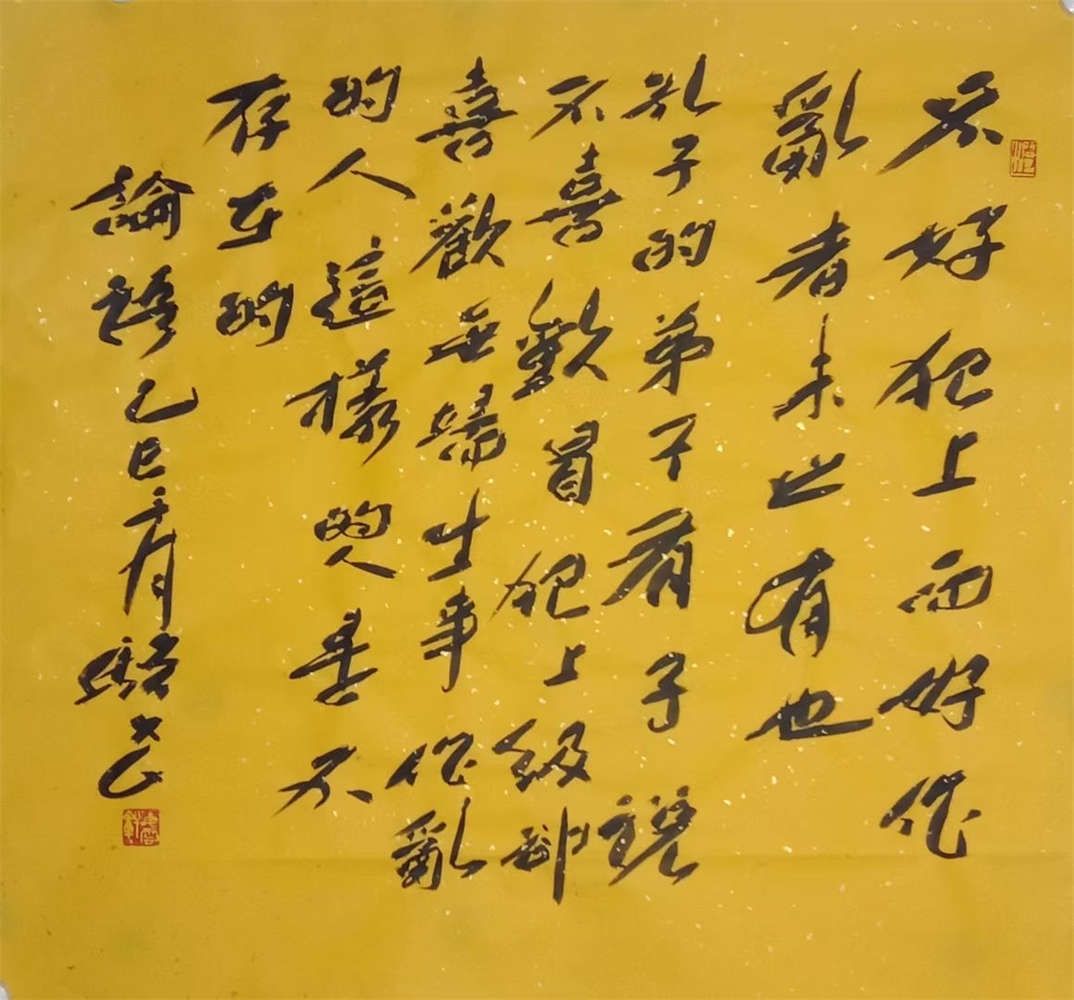 不好犯上而好作
亂者未之有也
孔子的弟子有子說
不喜歡冒犯上級卻
喜歡無端生事作亂
的人這樣的人是不
存在的
論語乙巳